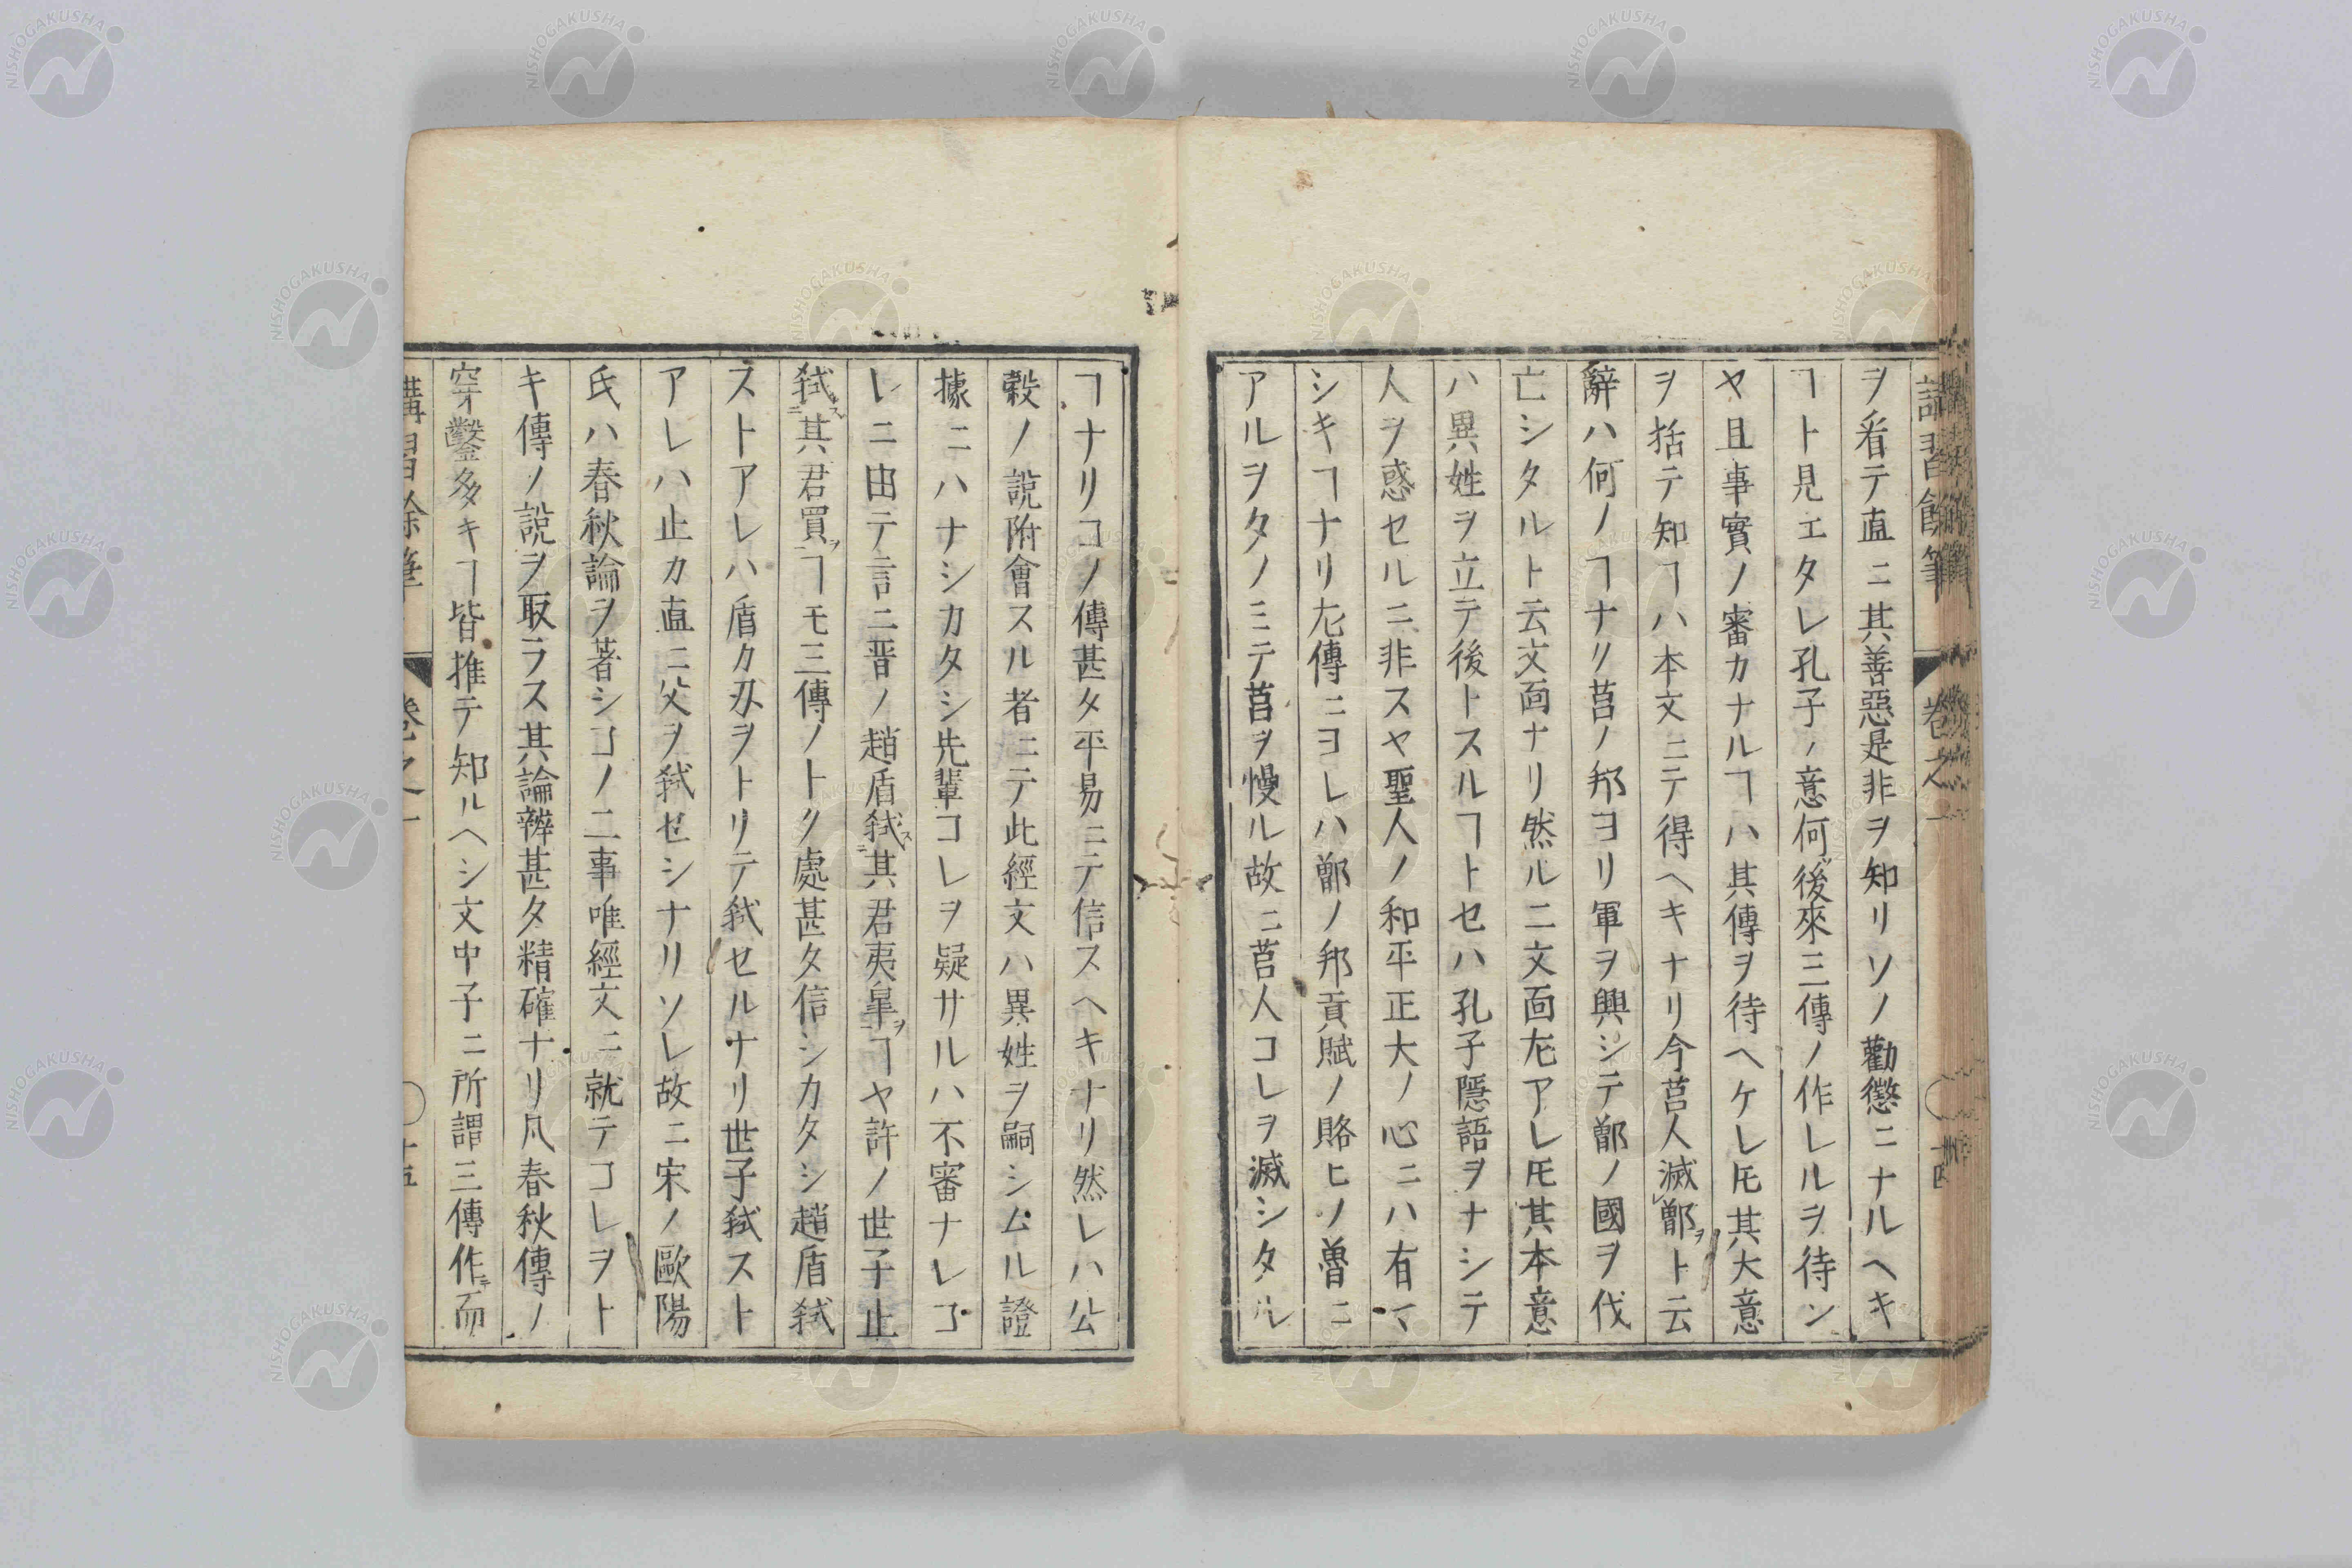 講習餘筆 卷之一 〇 十四
ヲ看テ直ニ其善惡是非ヲ知リソノ勸懲ニナルヘキ
ヿト見エタレ孔子ノ意何後來三傳ノ作レルヲ待ン
ヤ且事實ノ審カナルヿハ其傳ヲ待ヘケレ𪜈其大意
ヲ括テ知ヿハ本文ニテ得ヘキナリ今莒人滅鄫ヲト云
辭ハ何ノヿナリ莒ノ邦ヨリ軍ヲ興シテ鄫ノ國ヲ伐
亡シタルト云文面ナリ然ルニ文面尨アレ𪜈其本意
ハ異姓ヲ立テ後トスルヿトセハ孔子隱語ヲナシテ
人ヲ惑セルニ非スヤ聖人ノ和平正大ノ心ニハ有マ
シキヿナリ尨傳ニヨレハ鄫ノ邦貢賦ノ賂ヒノ魯ニ
アルヲタノミテ莒ヲ慢ル故ニ莒人コレヲ滅シタル
ヿナリコノ傳甚タ平易ニテ信スヘキナリ然レハ公
穀ノ說附會スル者ニテ此經文ハ異姓ヲ嗣シムル證
據ニハナシカタシ先輩コレヲ疑サルハ不審ナレコ
レニ由テ言ニ晋ノ趙盾弑ス其君夷皐ヲヿヤ許ノ世子止
弑ス其君買ヲヿモ三傳ノトク處甚タ信シカタシ趙盾弑
ストアレハ盾カ刄ヲトリテ弑セルナリ世子弑スト
アレハ止カ直ニ父ヲ弑セシナリソレ故ニ宋ノ歐陽
氏ハ春秋論ヲ著シコノ二事唯經文ニ就テコレヲト
キ傳ノ說ヲ取ラス其論辨甚タ精確ナリ凡春秋傳ノ
穿鑿多キヿ皆推テ知ルヘシ文中子ニ所謂三傳作テ而
講習餘筆 卷之一 〇 十五
NISHOGAKUSHA